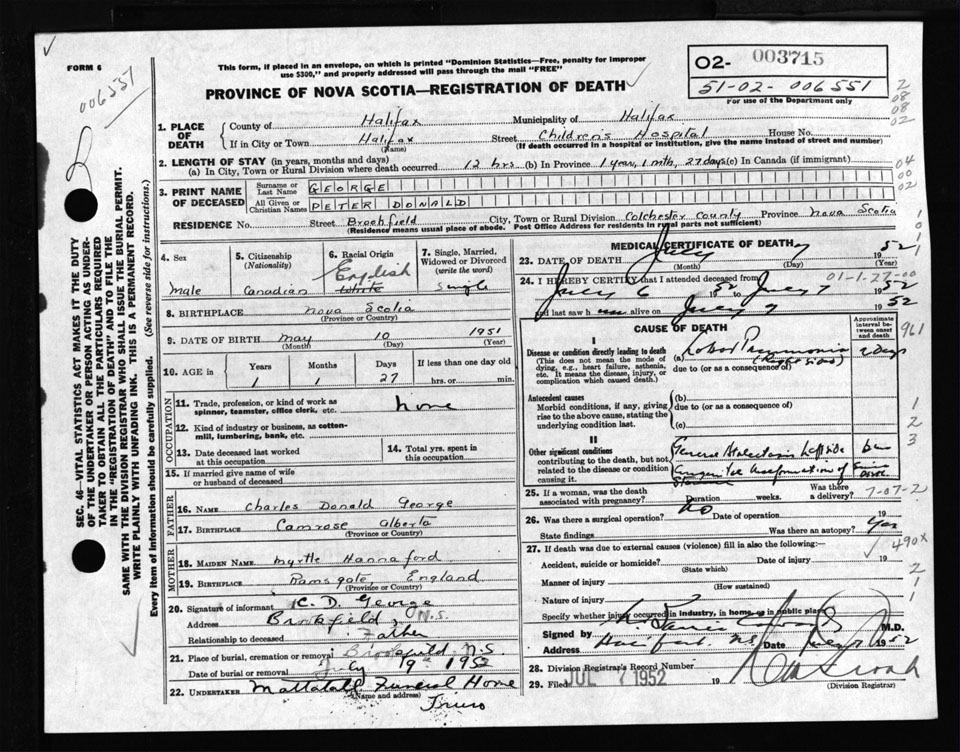 FORM 6
006551
This form, if placed in an envelope, on which is printed "Dominion Statistics—Free, penalty for improper
use $300," and properly addressed will pass through the mail "FREE"
PROVINCE OF NOVA SCOTIA—REGISTRATION OF DEATH
02- 003715
51-02- 006551
For use of the Department only
2
08
08
02
1. PLACE OF DEATH
County of Halifax Municipality of Halifax
If in City or Town Halifax Street Children's Hospital House No.
(Name) (If death occurred in a hospital or institution, give the name instead of street and number)
2. LENGTH OF STAY (in years, months and days)
(a) In City, Town or Rural Division where death occurred 12 hrs (b) In Province 1 year, 1 mth, 27 days (c) In Canada (if immigrant)
04
00
02
3. PRINT NAME OF DECEASED
Surname or Last Name GEORGE
All Given or Christian Names PETER DONALD
RESIDENCE No. Street Brookfield City, Town or Rural Division Colchester County Province Nova Scotia
(Residence means usual place of abode. Post Office Address for residents in rural parts not sufficient)
SEC. 46—VITAL STATISTICS ACT MAKES IT THE DUTY
OF THE UNDERTAKER OR PERSON ACTING AS UNDER-
TAKER TO OBTAIN ALL THE PARTICULARS REQUIRED
IN THE "REGISTRATION OF DEATH" AND TO FILE THE
SAME WITH THE DIVISION REGISTRAR WHO SHALL ISSUE THE BURIAL PERMIT.
WRITE PLAINLY WITH UNFADING INK. THIS IS A PERMANENT RECORD.
Every item of information should be carefully supplied. (See reverse side for instructions.)
4. Sex
Male
5. Citizenship
(Nationality)
Canadian
6. Racial Origin
English
White
7. Single, Married,
Widowed or Divorced
(write the word)
Single
8. BIRTHPLACE Nova Scotia
(Province or Country)
9. DATE OF BIRTH May 10 1951
(Month) (Day) (Year)
10. AGE in
Years Months Days If less than one day old
1 1 27 hrs. or min.
OCCUPATION
11. Trade, profession, or kind of work as
spinner, teamster, office clerk, etc. none
12. Kind of industry or business, as cotton-
mill, lumbering, bank, etc.
13. Date deceased last worked
at this occupation
14. Total yrs. spent in
this occupation
15. If married give name of wife
or husband of deceased
FATHER
16. NAME Charles Donald George
17. BIRTHPLACE Camrose Alberta
(Province or Country)
MOTHER
18. MAIDEN NAME Myrtle Hannaford
19. BIRTHPLACE Ramsgate England
(Province or Country)
20. Signature of informant C. D. George
Address Brookfield, N.S.
Relationship to deceased Father
21. Place of burial, cremation or removal Brookfield, N.S.
Date of burial or removal July 9th 1952
22. UNDERTAKER Mattatall Funeral Home
(Name and address)
Truro
MEDICAL CERTIFICATE OF DEATH
23. DATE OF DEATH July 7 1952
(Month) (Day) (Year)
24. I HEREBY CERTIFY that I attended deceased from 01-1-27-00
July 6 1952 to July 7 1952
and last saw h alive on July 7 1952
CAUSE OF DEATH
Approximate interval between onset and death
I
Disease or condition directly leading to death
(This does not mean the mode of
dying, e.g., heart failure, asthenia,
etc. It means the disease, injury, or
complication which caused death.)
(a) Lobar Pneumonia 2 days
due to (or as a consequence of)
961
Antecedent causes
Morbid conditions, if any, giving
rise to the above cause, stating the
underlying condition last.
(b)
due to (or as a consequence of)
(c)
1
2
3
II
Other significant conditions
contributing to the death, but not
related to the disease or condition
causing it.
General Atelectasis Left side
malformation of
25. If a woman, was the death
associated with pregnancy? Duration weeks. Was there a delivery? 7-07-2
26. Was there a surgical operation? no Date of operation
State findings Was there an autopsy? Yes
27. If death was due to external causes (violence) fill in also the following:—
490X
Accident, suicide or homicide? Date of injury
(State which)
Manner of injury
(How sustained)
Nature of injury
2
1
1
Specify whether injury occurred in industry, in home or in public place
Signed by M.D.
Address Halifax N.S. Date July 7 1952
28. Division Registrar's Record Number
29. Filed JUL 7 1952 19
(Division Registrar)